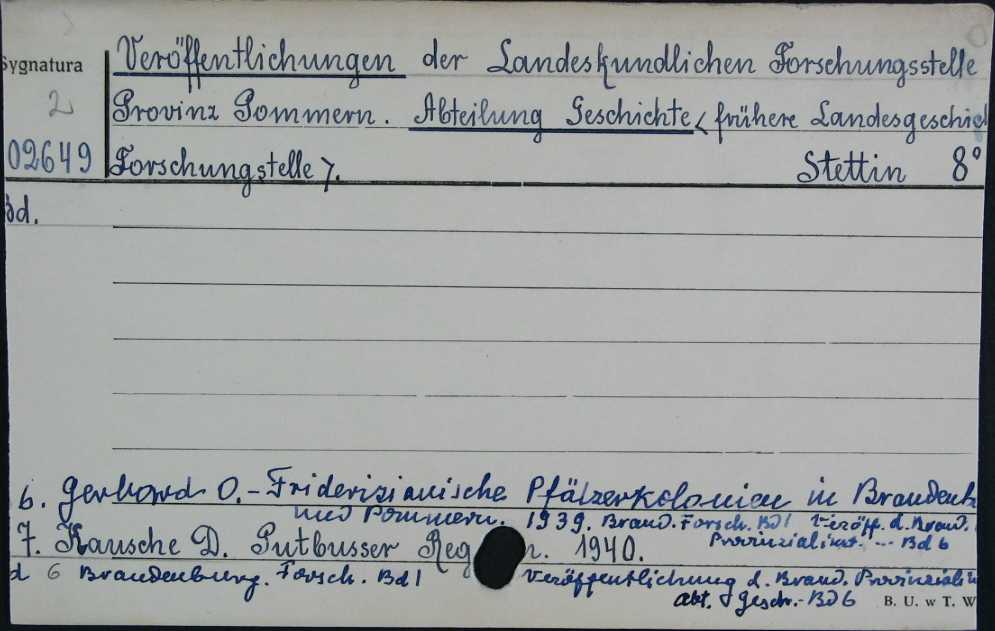 Sygnatura Veröffentlichungen der Landeskundlichen Forschungsstelle
2 Provinz Pommern. Abteilung Geschichte < frühere Landesgeschich
02649 Forschungstelle >. Stettin 8°
Bd.
6. Gerhard O. - Friderizianische Pfälzerkolonien in Brandenb
und Pommern. 1939. Brand. Forsch. Bd 1 Veröff. d. Brand.
7. Kausche D. Putbusser Reg n. 1940. Provinzialinst. ... Bd 6
d 6 Brandenburg. Forsch. Bd 1 Veröffentlichung d. Brand. Provinziali
Abt. Gesch. - Bd 6 B. U. w T. W